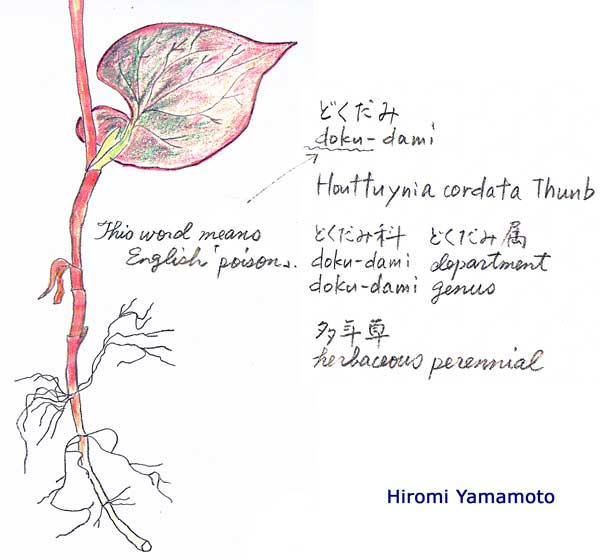 どくだみ
doku-dami
Houttuynia cordata Thunb
This word means
English「poison」.
どくだみ科 どくだみ属
doku-dami department
doku-dami genus
多年草
herbaceous perennial
Hiromi Yamamoto